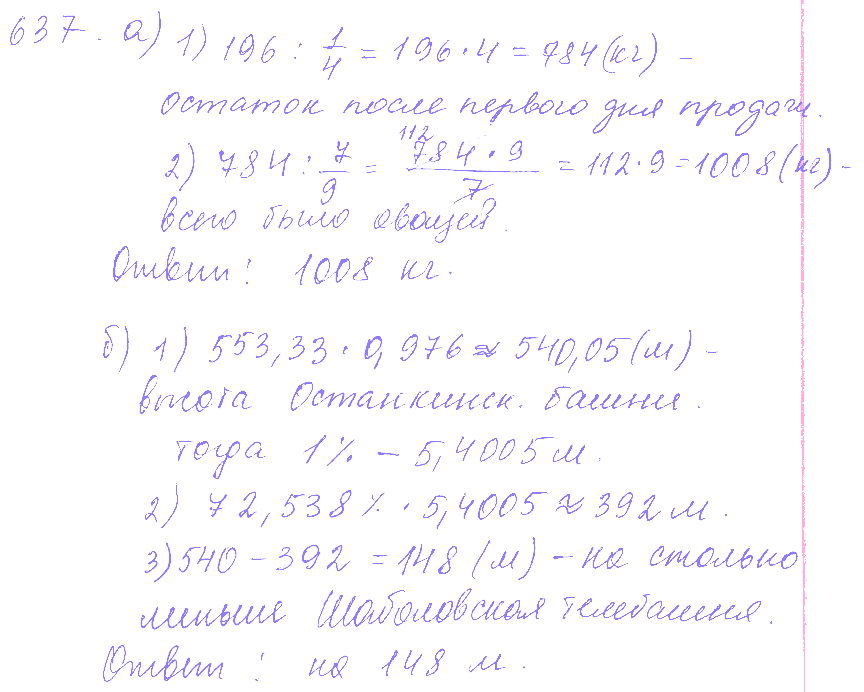 637. а) 1) 196 : 1/4 = 196 · 4 = 784 (кг) –
остаток после первого дня продажи.
2) 784 : 7/9 = 784 · 9 / 7 = 112 · 9 = 1008 (кг) –
112
всего было овощей.
Ответ: 1008 кг.
б) 1) 553,33 · 0,976 ≈ 540,05 (м) –
высота Останкинск. башни.
тогда 1% – 5,4005 м.
2) 72,538% · 5,4005 ≈ 392 м.
3) 540 – 392 = 148 (м) – на столько
меньше Шаболовская телебашня.
Ответ: на 148 м.